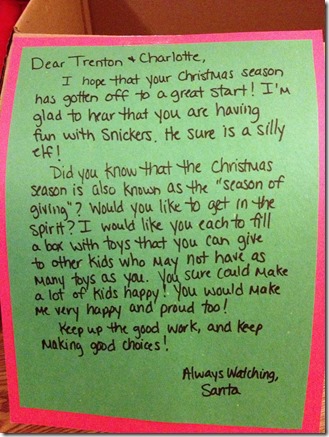 Dear Trenton + Charlotte,
I hope that your Christmas season
has gotten off to a great start! I'm
glad to hear that you are having
fun with Snickers. He sure is a silly
elf!
Did you know that the Christmas
season is also known as the "season of
giving"? Would you like to get in the
spirit? I would like you each to fill
a box with toys that you can give
to other kids who may not have as
many toys as you. You sure could make
a lot of kids happy! You would make
me very happy and proud too!
Keep up the good work, and keep
making good choices!
Always Watching,
Santa